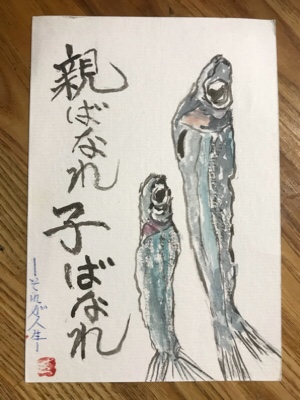 親ばなれ 子ばなれ
ーそれが人生ー